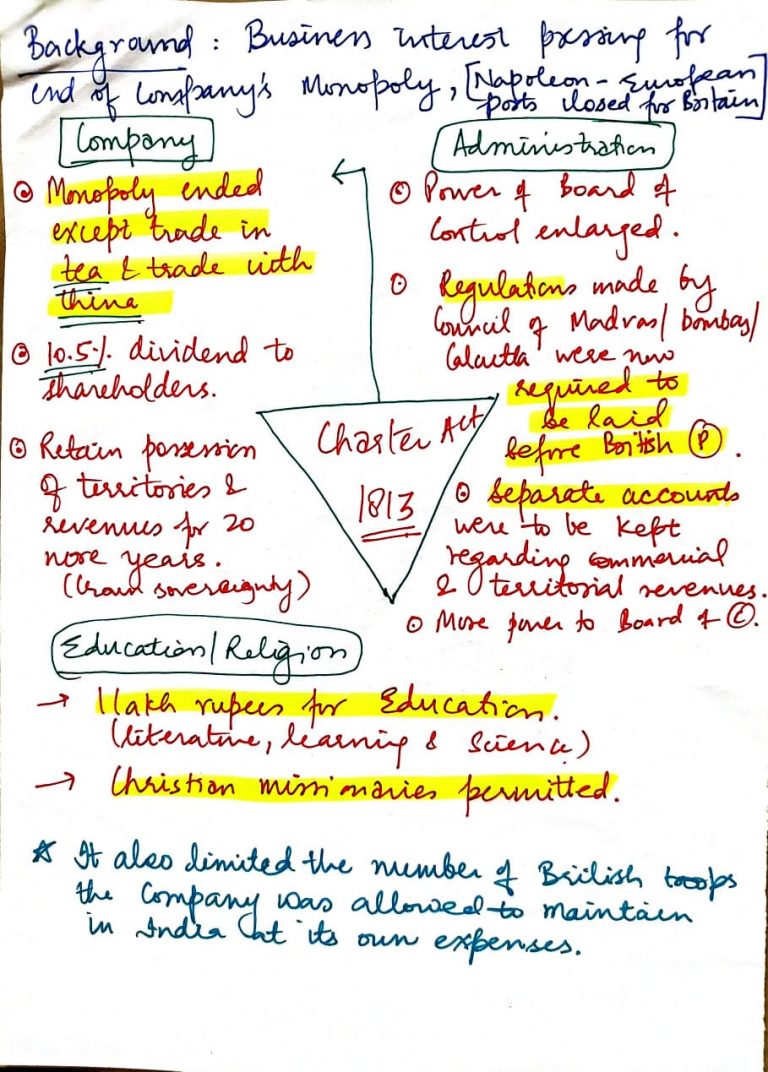 Background : Business interest pressing for
end of Company's Monopoly, [Napoleon - European
ports closed for Britain]
Company
Monopoly ended
except trade in
tea & trade with
China
10.5% dividend to
shareholders.
Retain possession
of territories &
revenues for 20
more years.
(Crown sovereignty)
Administration
Power of Board of
Control enlarged.
Regulations made by
Council of Madras/ bombay/
Calcutta were now
required to
be laid
before British (P).
Separate accounts
were to be kept
regarding commercial
& territorial revenues.
More power to Board of (C).
Charter Act
1813
Education/Religion
→ 1 lakh rupees for Education.
(literature, learning & Science)
→ Christian missionaries permitted.
☆ It also limited the number of British troops
the Company was allowed to maintain
in India at its own expenses.